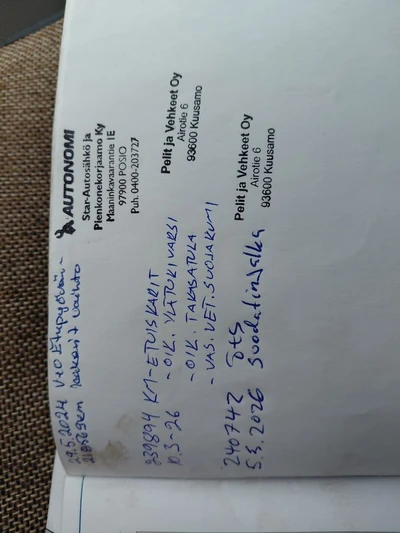 29.5.2024 V+O Etupyörän-
laakerit vaihto
AUTONOMI
Star-Autosähkö ja
Pienkonekorjaamo Ky
Maaninkavaarantie 1E
97900 POSIO
Puh. 0400-203727
239894 KM -ETUISKARIT
10.3-26 - OIK. YLÄTUKIVARSI
- OIK. TAKASATULA
- VAS. VET. SUOJAKUMI
Pelit ja Vehkeet Oy
Airotie 6
93600 Kuusamo
240742
5.3.2026 Suodatinjalka
Pelit ja Vehkeet Oy
Airotie 6
93600 Kuusamo